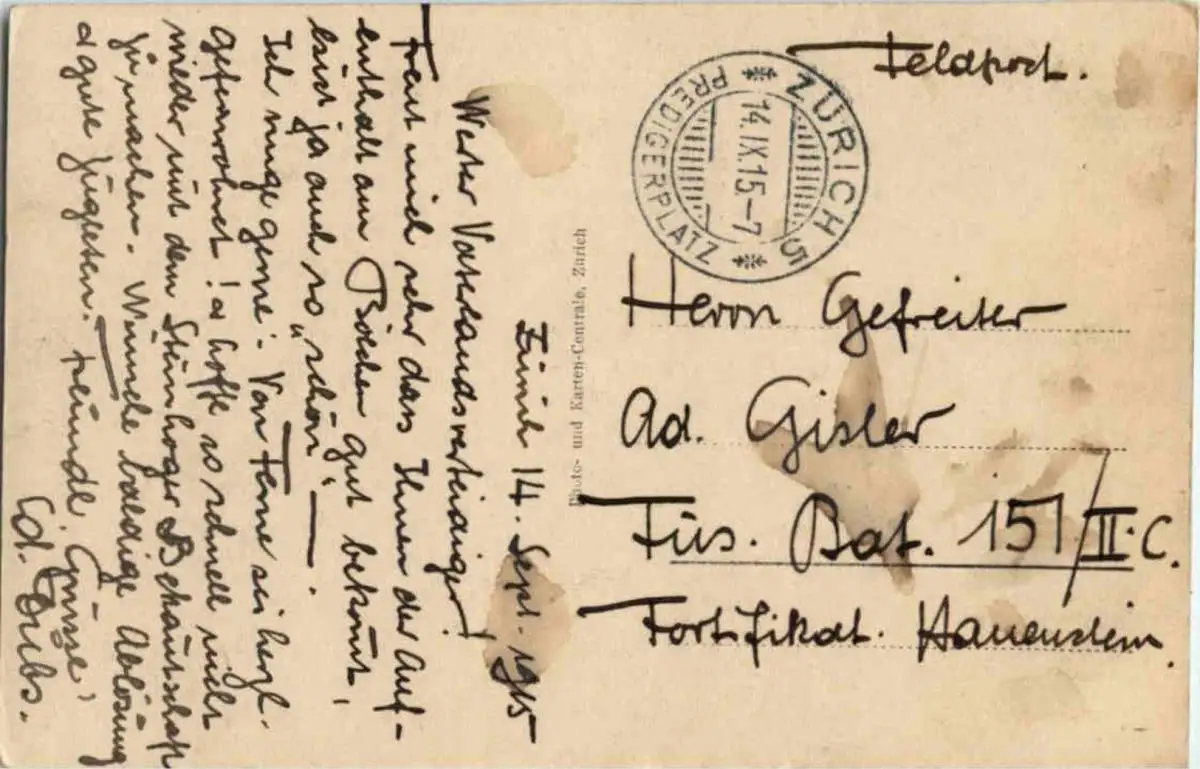 Zürich 14. Sept. 1915
Werter Vaterlandsverteidiger!
Freut mich sehr dass Ihnen der Auf-
enthalt am gut bekommt,
ja auch so „schön" —.
Ich ringe gerne: Von Ferne sei herzl.
! & hoffe so schnell nicht
wieder mit dem Steinhoger Bekanntschaft
zu machen. Wünsche baldige Ablösung
& gute freundl. Grüsse,
Ed.
Photo- und Karten-Centrale, Zürich
ZÜRICH 5
PREDIGERPLATZ
14.IX.15-7
Feldpost.
Herrn Gefreiter
Ad. Gisler
Füs. Bat. 151/II.C.
Fortifikat. Hauenstein.